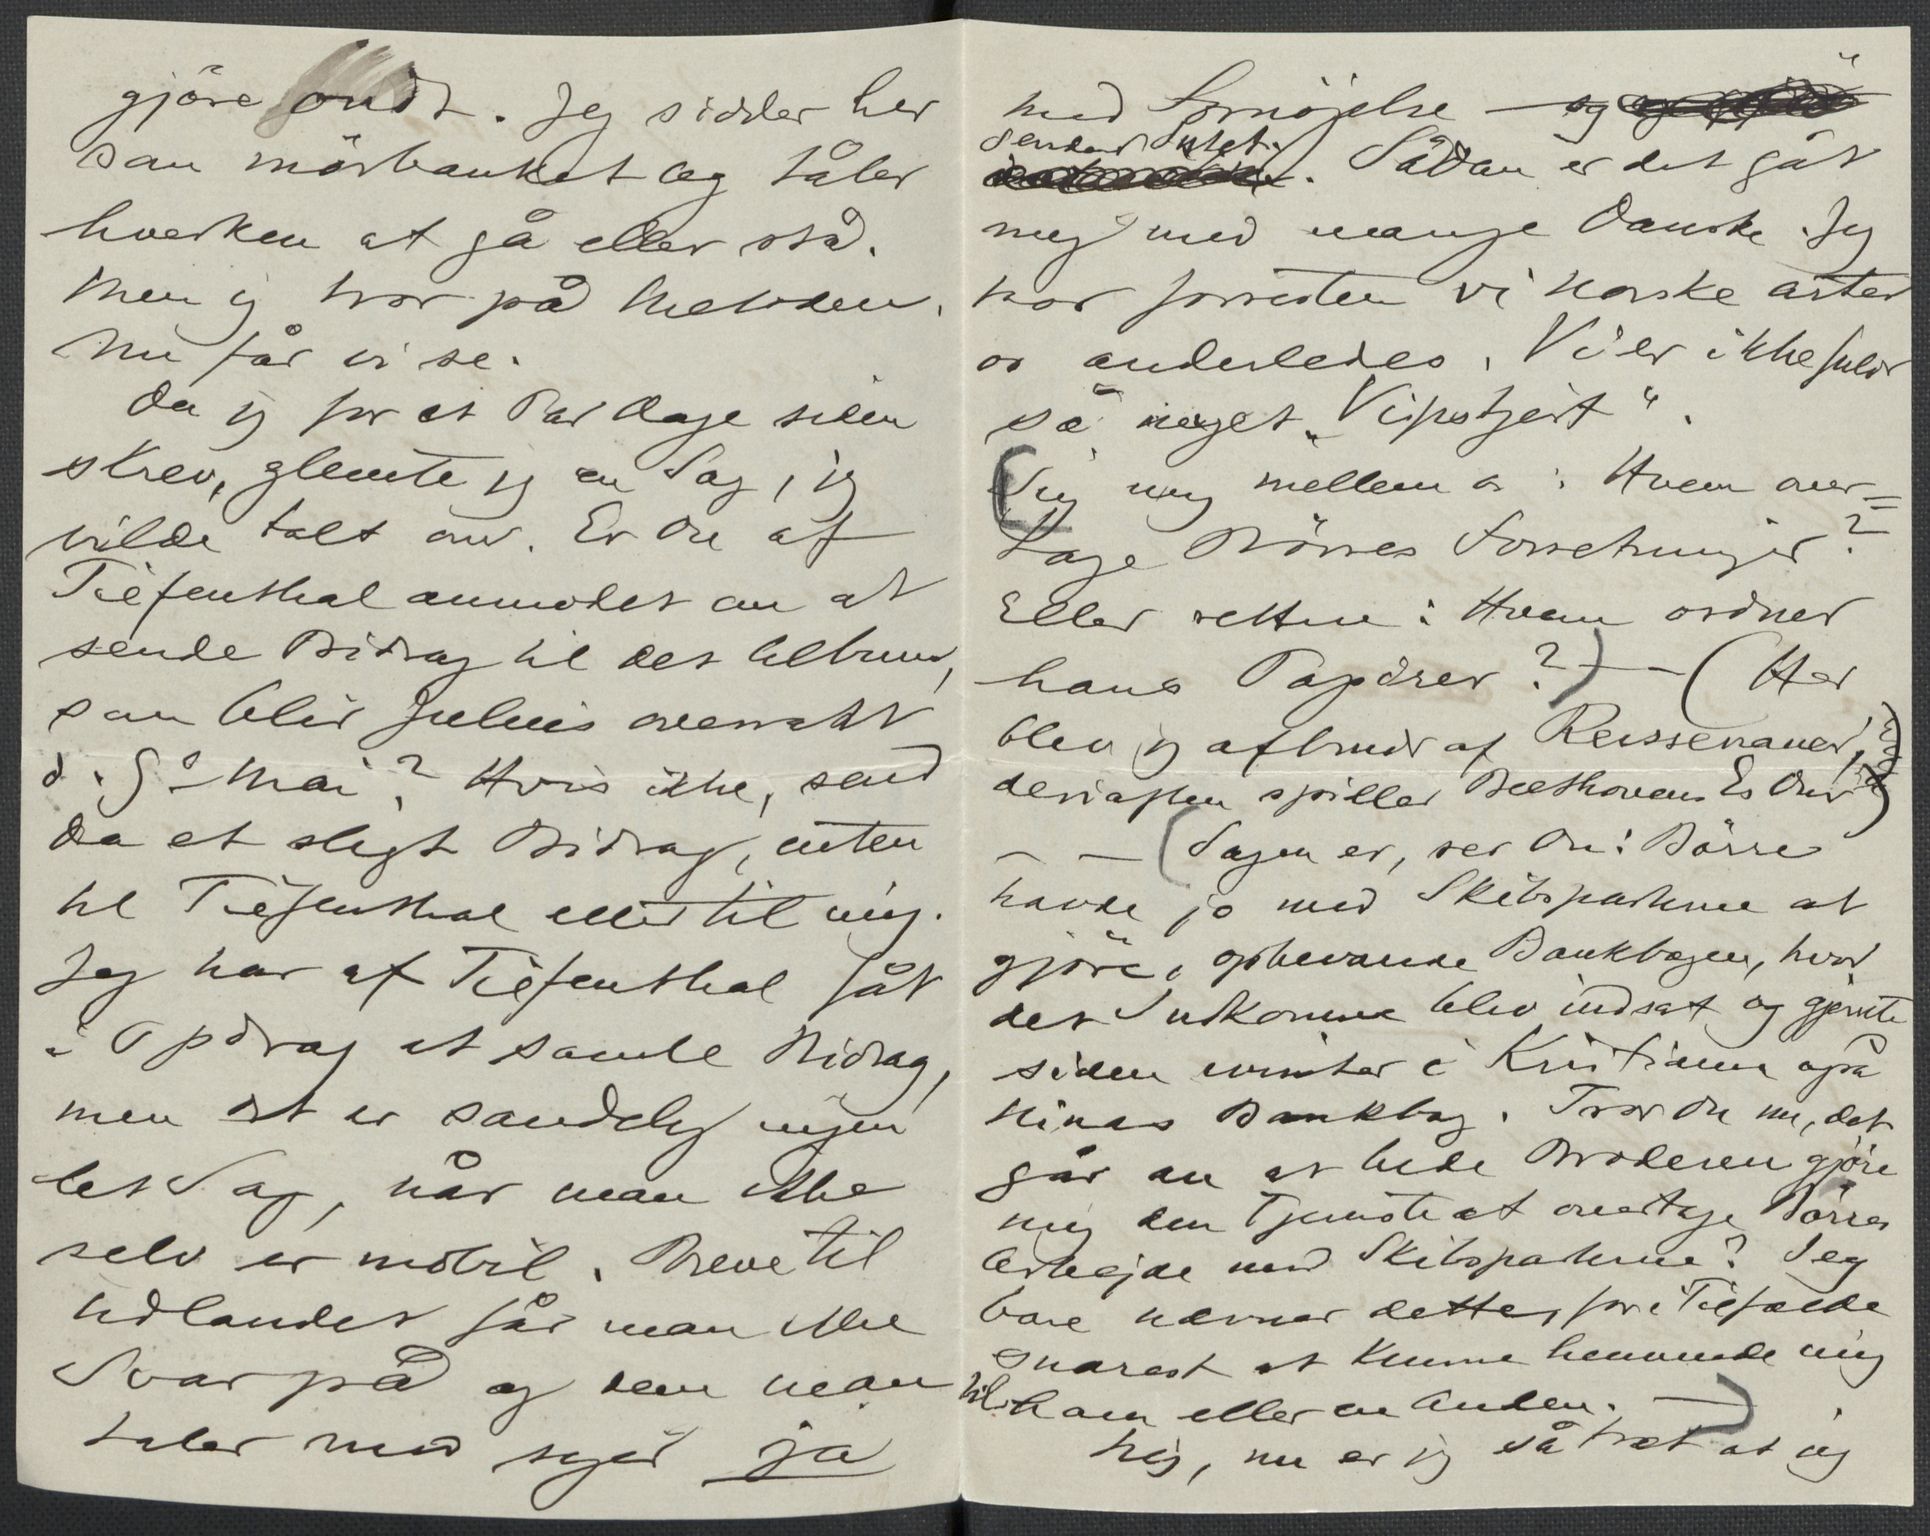 gjöre ondt. Jeg sidder her
som mörbanket og tåler
hverken at gå eller stå.
Men jeg tror på Metoden.
Nu får vi se.
Da jeg for et Par Dage siden
skrev, glemte jeg en Sag, jeg
vilde talt om. Er Du af
Tiefenthal anmodet om at
sende Bidrag til det Album,
som blir Julius overrakt
d. 9de Mai? Hvis ikke, send
da et sligt Bidrag, enten
til Tiefenthal eller til mig.
Jeg har af Tiefenthal fåt
i Opdrag at samle Bidrag,
men det er sandelig ingen
let Sag, når man ikke
selv er mobil. Breve til
Udlandet får man ikke
Svar på og dem man
taler med siger ja
med Fornøjelse – og
sender Intet. Sådan er det gåt
mig med mange Danske. Jeg
tror forresten vi Norske arter
os anderledes. Vi er ikke fuldt
så meget "Vipstjert".
(Sig mig mellem os: Hvem over=
tage Börres Forretninger?
Eller rettere: Hvem ordner
hans Papirer?) – (Her
blev jeg afbrudt af Reissenauer,
der iaften spiller Beethovens Es Dur)
– – (Sagen er, ser Du: Börre
havde jo med Skibsparterne at
gjöre, opbevarede Bankbogen, hvor
det Indkomne blev indsat og gjemte
siden ivinter i Kristiania også
Ninas Bankbog. Tror Du nu, det
går an at bede Broderen gjöre
mig den Tjeneste at overtage Börres
Arbejde med Skibsparterne? Jeg
bare nævner dette, for i Tilfælde
snarest at kunne henvende mig
til ham eller en Anden. –)
Nej, nu er jeg så træt at jeg